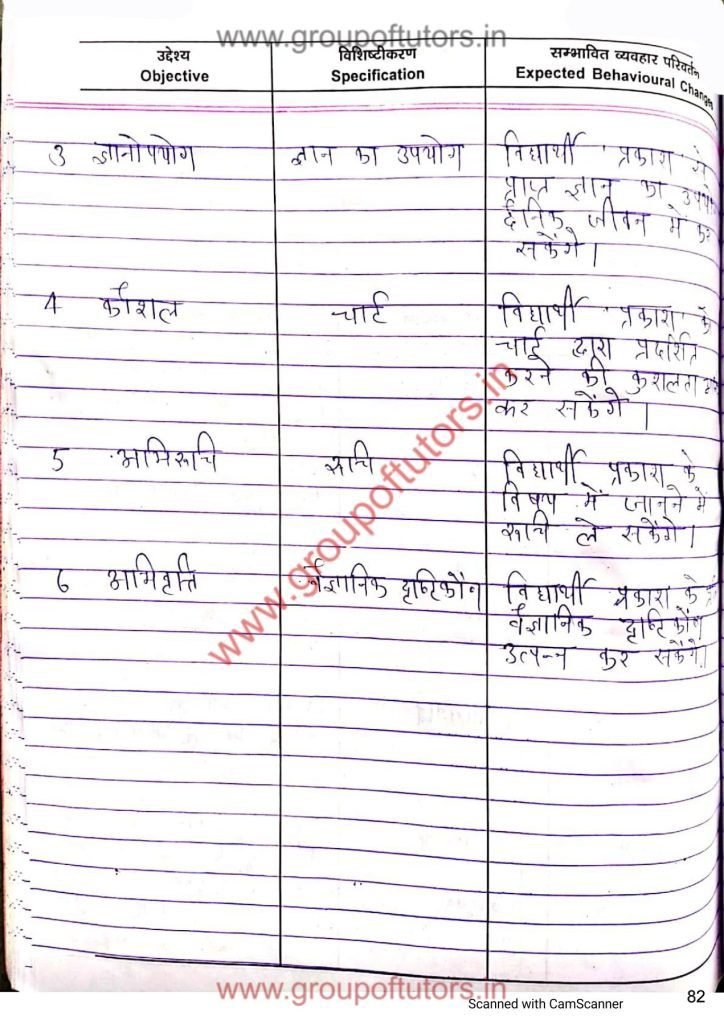 www.groupoftutors.in
उद्देश्य विशिष्टीकरण सम्भावित व्यवहार परिवर्तन
Objective Specification Expected Behavioural Changes
3 ज्ञानोपयोग ज्ञान का उपयोग विद्यार्थी प्रकाश से
प्राप्त ज्ञान का
दैनिक जीवन में कर
सकेंगे।
4 कौशल चार्ट विद्यार्थी प्रकाश के
चार्ट द्वारा प्रदर्शित
करने की
कर सकेंगे।
5 अभिरूचि रूचि विद्यार्थी प्रकाश के
विषय में जानने में
रूचि ले सकेंगे।
6 अभिवृत्ति वैज्ञानिक दृष्टिकोंण विद्यार्थी प्रकाश के
वैज्ञानिक दृष्टिकोंण
उत्पन्न कर सकेंगे।
www.groupoftutors.in
www.groupoftutors.in
Scanned with CamScanner
82